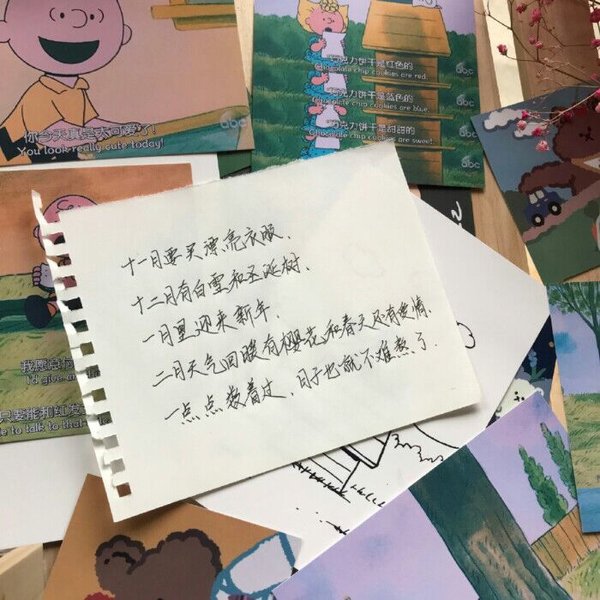 你今天真是太可爱了！
You look really cute today!
abc
巧克力饼干是红色的
Chocolate chip cookies are red.
巧克力饼干是蓝色的
Chocolate chip cookies are blue.
巧克力饼干是甜甜的
Chocolate chip cookies are sweet.
abc
abc
abc
十一月要买漂亮衣服、
十二月有白雪和圣诞树、
一月里迎来新年、
二月天气回暖有樱花和春天还有爱情、
一点点数着过、日子也就不难熬了.
我愿意
I'd give an
只要能和红发
to talk to that